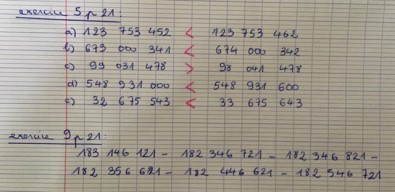 exercice 5 p 21 :
a) 123 753 452 < 123 753 462
b) 673 000 341 < 674 000 342
c) 99 031 478 > 98 041 478
d) 548 931 000 < 548 931 600
e) 32 675 543 < 33 675 643
exercice 9 p 21 :
183 146 121 - 182 346 721 - 182 346 821 -
182 356 621 - 182 446 621 - 182 546 721